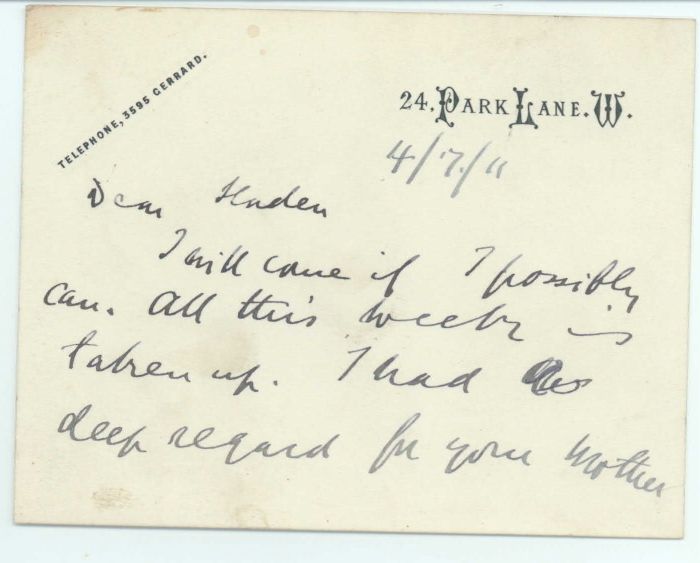 TELEPHONE, 3595 GERRARD.
24, PARK LANE. W.
4/7/11
Dear Haden
I will come if I possibly
can. All this week is
taken up. I had as
deep regard for your Mother